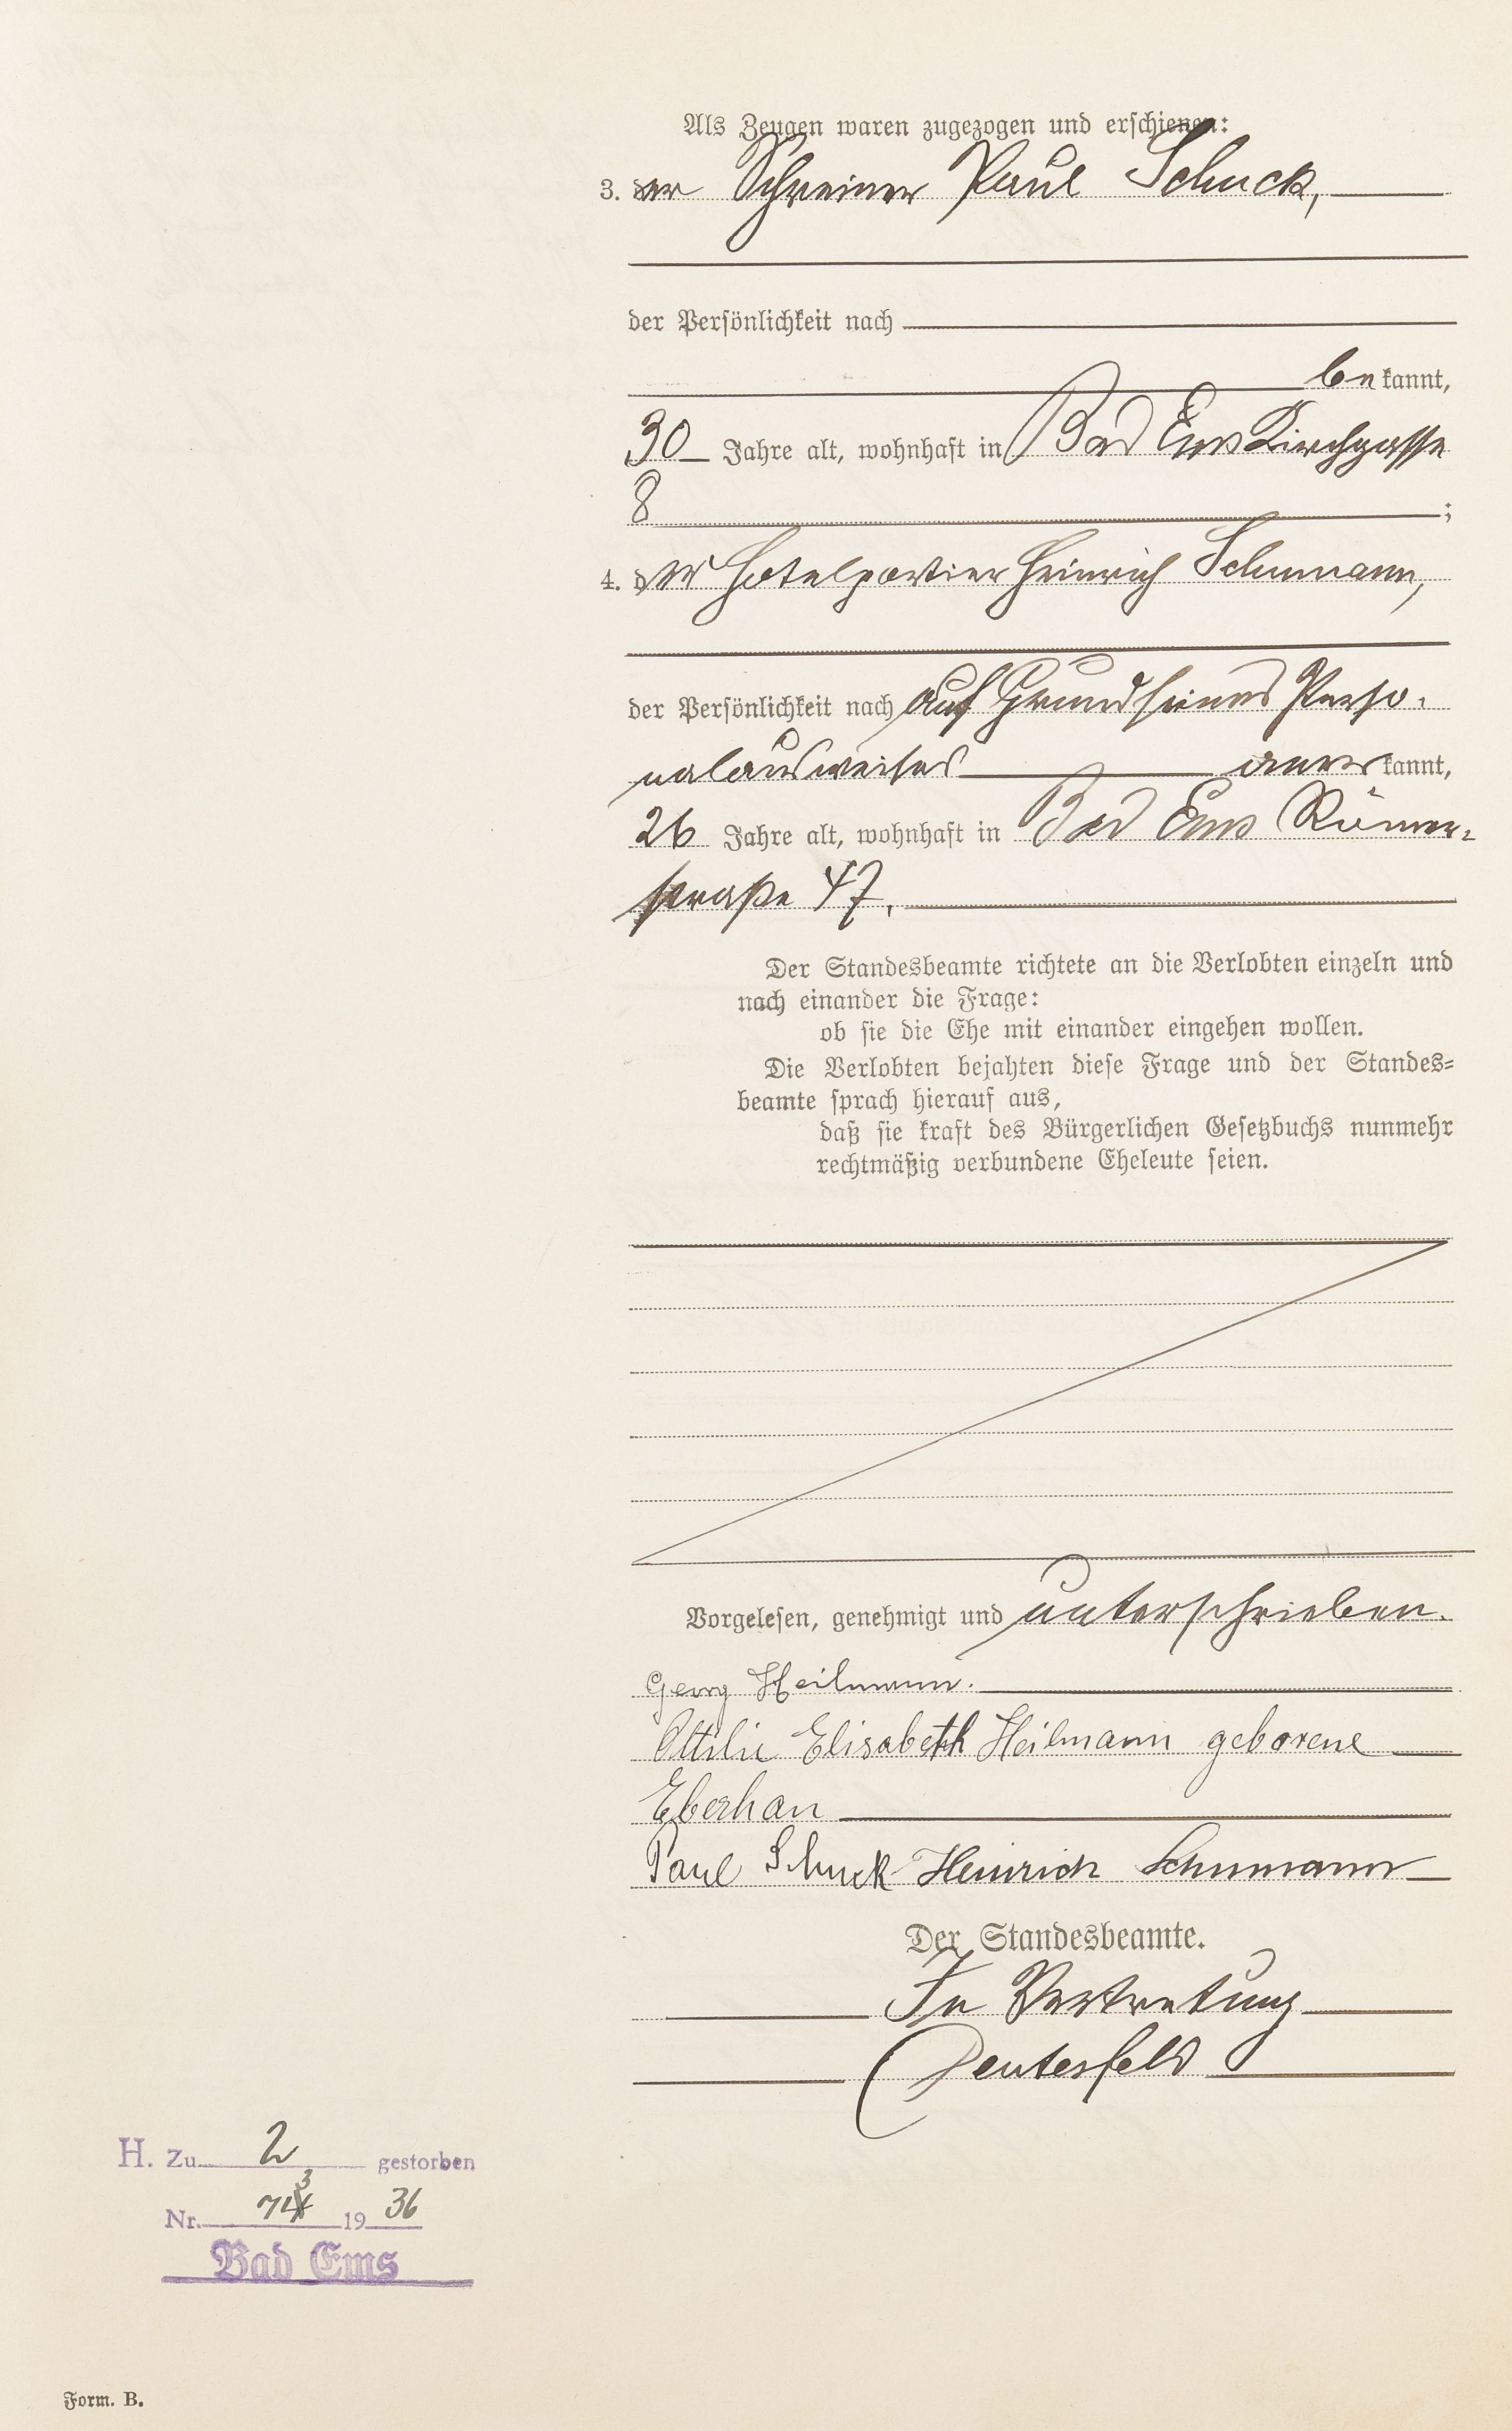 Als Zeugen waren zugezogen und erschienen:
3. der Schreiner Paul Schuck,
der Persönlichkeit nach
bekannt,
30 Jahre alt, wohnhaft in Bad Ems Kirchgasse
8 ;
4. der Hotelportier Heinrich Schumann,
der Persönlichkeit nach auf Grund seines Perso-
nalausweises anerkannt,
26 Jahre alt, wohnhaft in Bad Ems Römer-
straße 47.
Der Standesbeamte richtete an die Verlobten einzeln und
nach einander die Frage:
ob sie die Ehe mit einander eingehen wollen.
Die Verlobten bejahten diese Frage und der Standes-
beamte sprach hierauf aus,
daß sie kraft des Bürgerlichen Gesetzbuchs nunmehr
rechtmäßig verbundene Eheleute seien.
Vorgelesen, genehmigt und unterschrieben.
Georg Heilmann.
Ottilie Elisabeth Heilmann geborene
Eberhan
Paul Schuck Heinrich Schumann
Der Standesbeamte.
In Vertretung
Deutesfeld
H. Zu 2 gestorben
Nr. 1936
Bad Ems
Form. B.